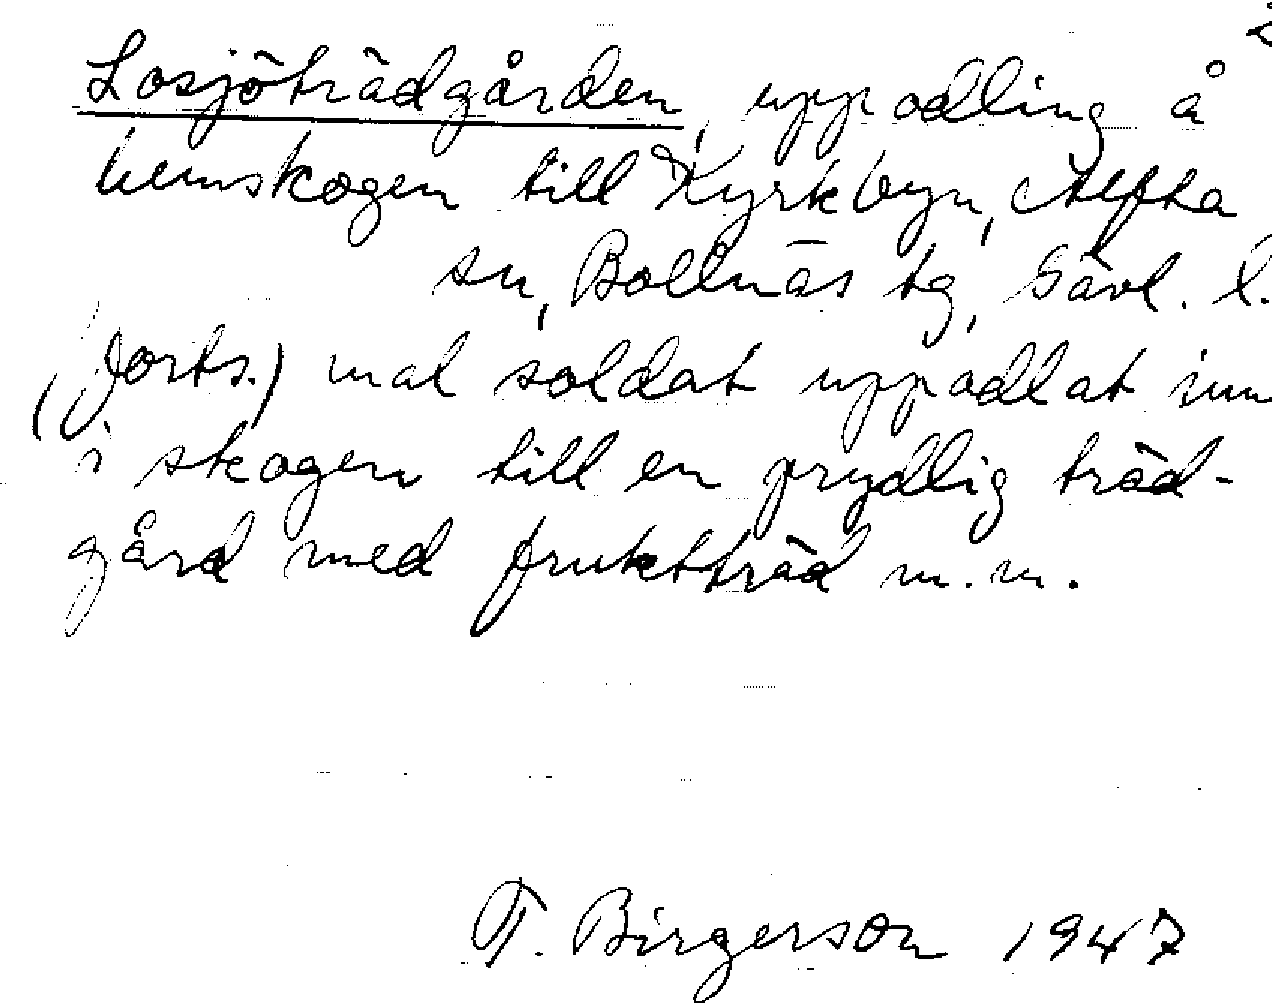 2
Losjöträdgården, uppodling å
hemskogen till Kyrkbyn, Alfta
sn, Bollnäs tg, Gävl. l.
(forts.) mal soldat uppodlat inn
i skogen till en prydlig träd-
gård med fruktträd m.m.
T. Birgerson 1947